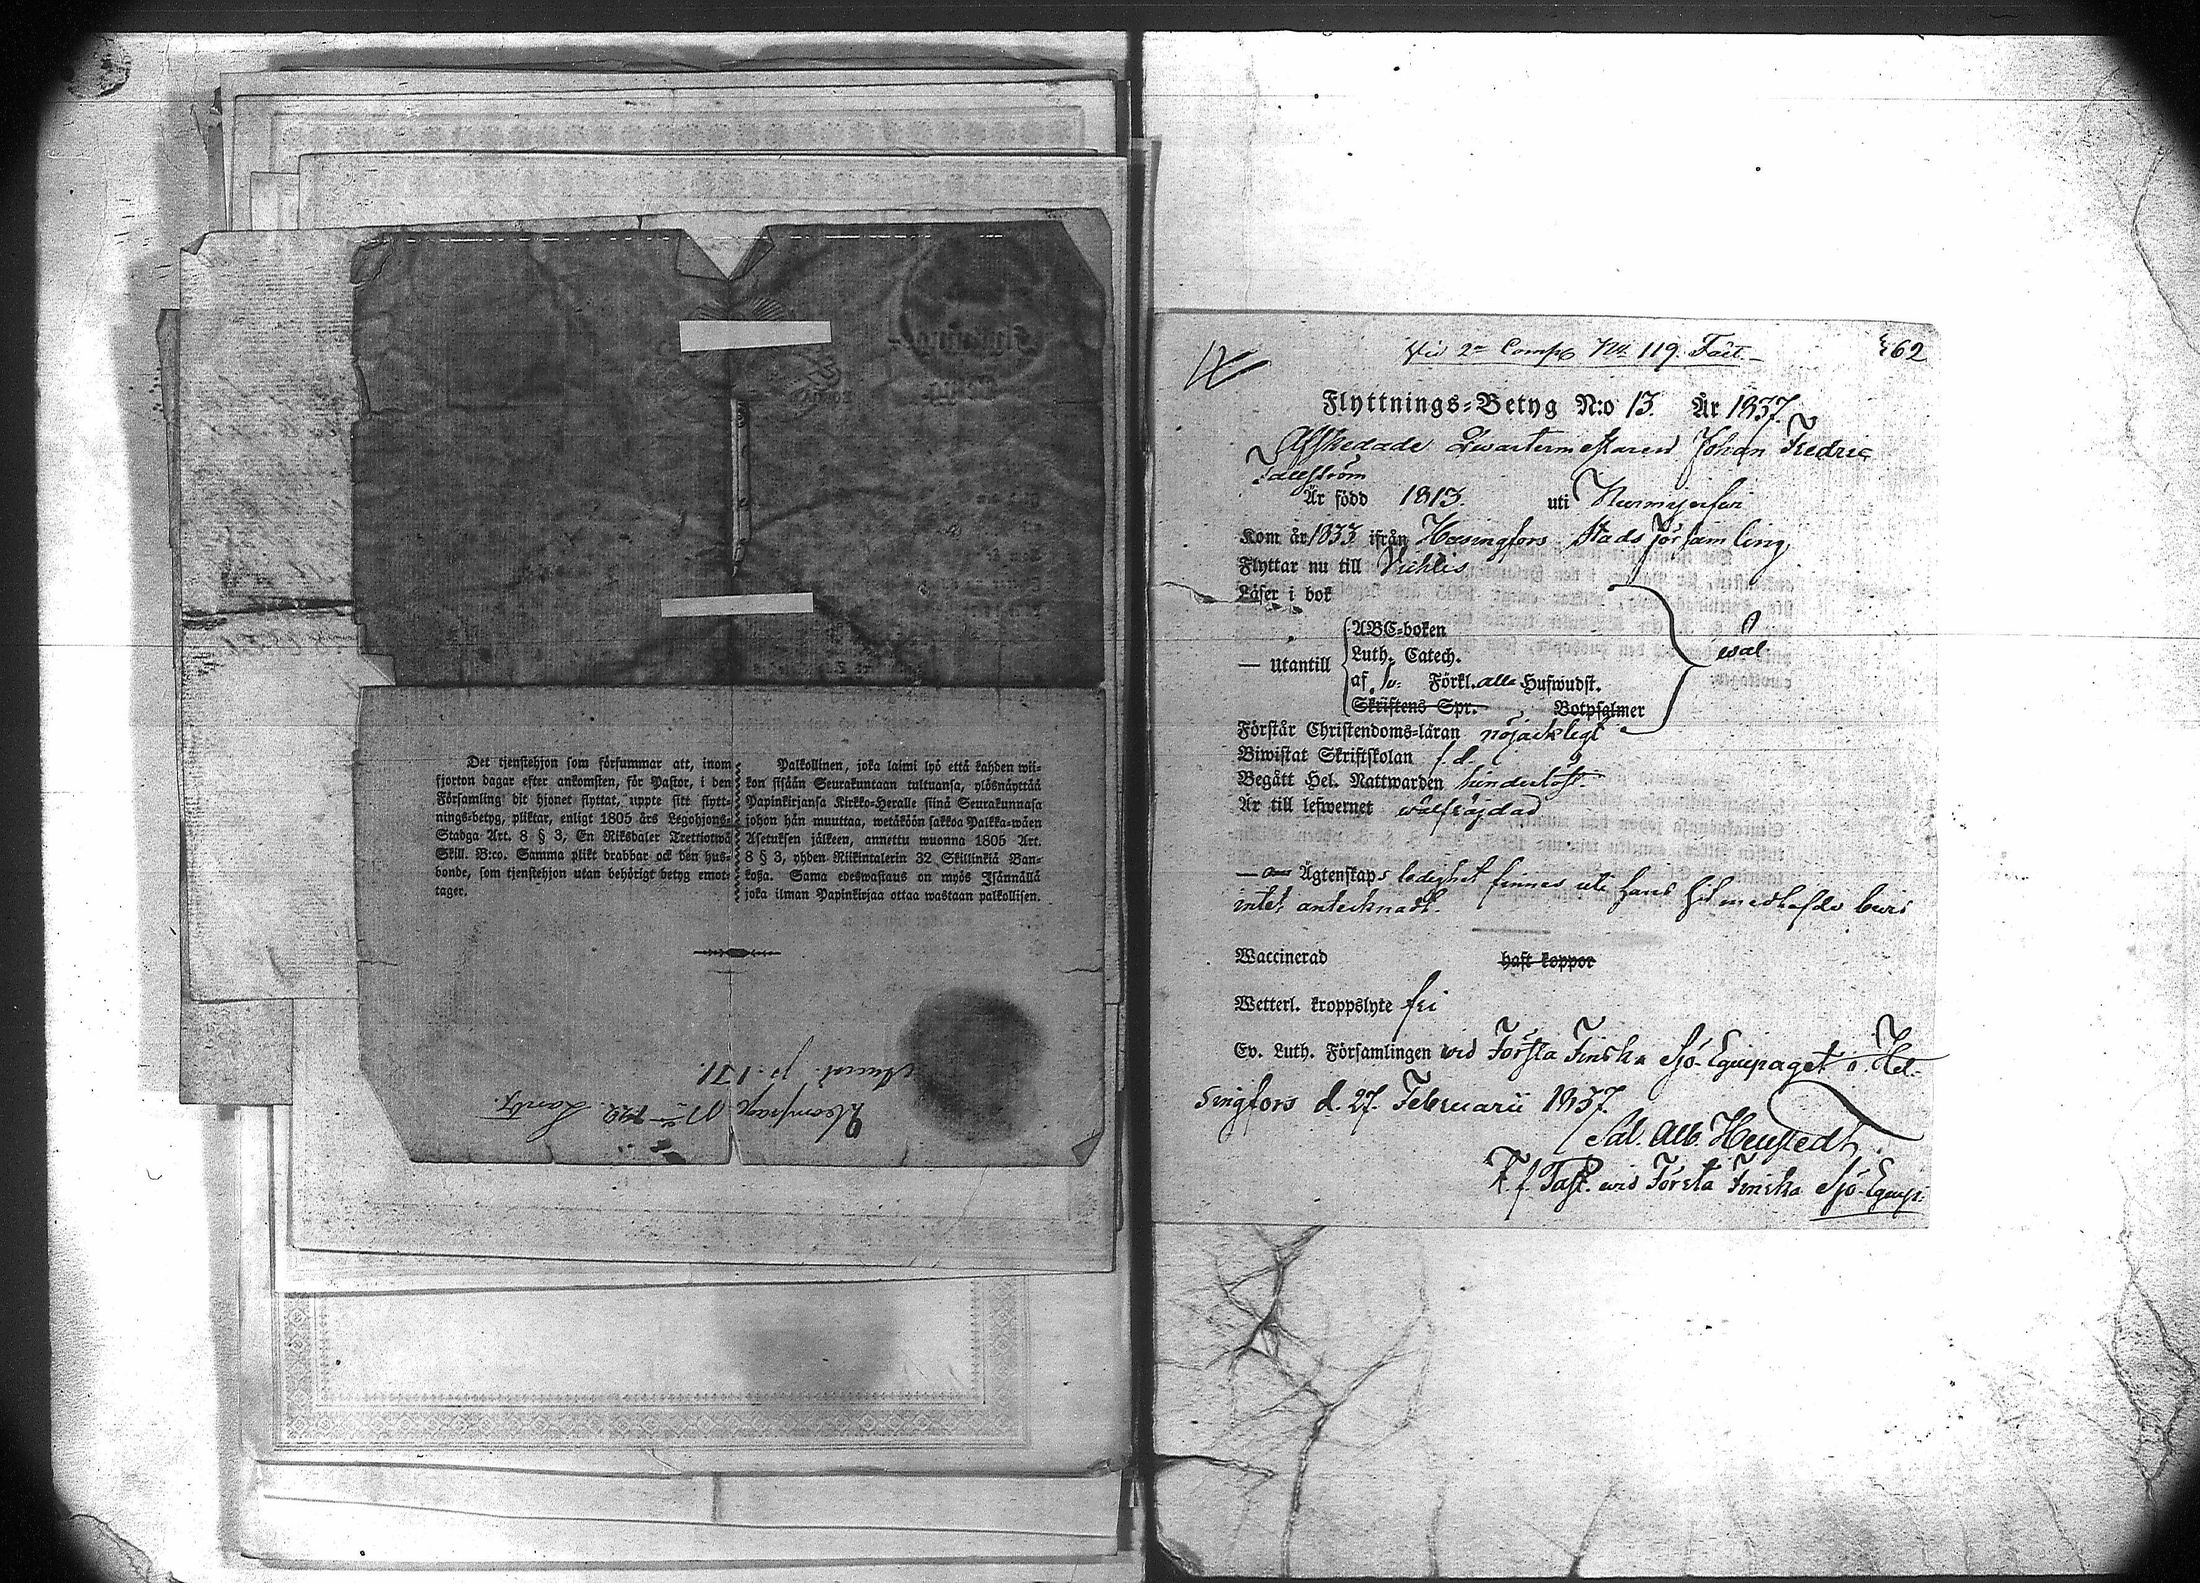 Det tjenstehjon som försummar att, inom
fjorton dagar efter ankomsten, för Pastor, i den
Församling dit hjonet flyttat, uppte sitt flytt-
nings-betyg, pliktar, enligt 1805 års Legohjons-
Stadga Art. 8 § 3, En Riksdaler Trettiotwå
Skill. B:co. Samma plikt drabbar ock den hus-
bonde, som tjenstehjon utan behörigt betyg emot-
tager.
Palkollinen, joka laimi lyö että kahden wii-
kon sisään Seurakuntaan tultuansa, ylösnäyttää
Papinkirjansa Kirkko-Heralle siinä Seurakunnasa
johon hän muuttaa, wetäköön sakkoa Palkka-wäen
Asetuksen jälkeen, annettu wuonna 1805 Art.
8 § 3, yhden Riikintalerin 32 Skillinkiä Ban-
koßa. Sama edeswastaus on myös Isännällä
joka ilman Papinkirjaa ottaa wastaan palkollisen.
2 Compag
p. 171.
2n Comp No 119.
62
Flyttnings-Betyg N:o 13. År 1837.
Afskedade Quartermästaren Johan Fredric
Är född 1813. uti Nurmijerfwi
Kom år 1833 ifrån Helsingfors Stads församling
Flyttar nu till Vichtis
Läser i bok
— utantill
ABC-boken
Luth. Catech.
af Förkl. alla Hufwudst.
Skriftens Spr. Botpsalmer
wäl
Förstår Christendoms-läran nöjacktligt
Biwistat Skriftskolan f. d.
Begått Hel. Nattwarden hinderlöst.
Är till lefwernet wälfräjdad
— Ägtenskaps ledighet finnes uti hans hit medhafde bewis
intet antecknadt.
Waccinerad haft koppor
Wetterl. kroppslyte fri
Ev. Luth. Församlingen wid Första Finska Sjö-Equipaget i Hel-
singfors d. 27. Februarii 1837.
Sal. Alb.
T. f. Past. wid Första Finska Sjö-Equip.